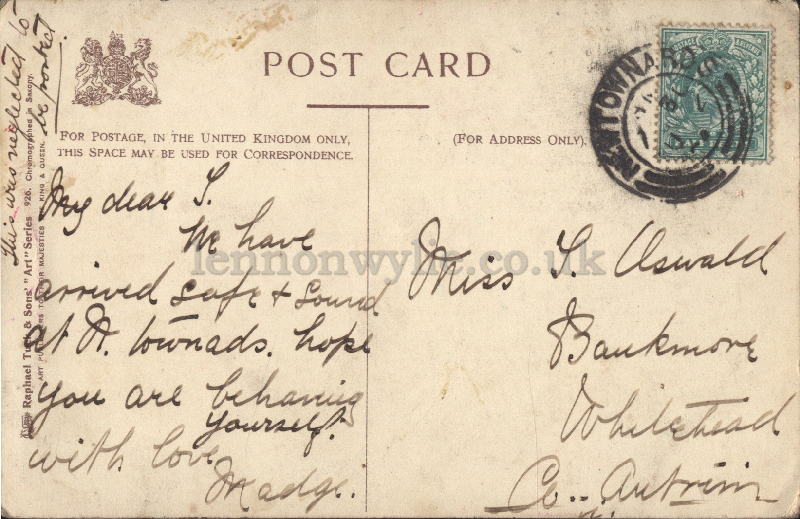 This was neglected to
be posted
POST CARD
FOR POSTAGE, IN THE UNITED KINGDOM ONLY,
THIS SPACE MAY BE USED FOR CORRESPONDENCE.
(FOR ADDRESS ONLY).
NEWTOWNARDS
Raphael Tuck & Sons' "Art" Series 926. Chromographed in Saxony.
ART PUBLISHERS TO THEIR MAJESTIES THE KING & QUEEN.
My dear I.
We have
arrived safe & sound
at N. townads. hope
you are behaving
yourself.
with love
Madge.
Miss I. Oswald
Bankmore
Whitehead
Co.. Antrim
lennonwylie.co.uk